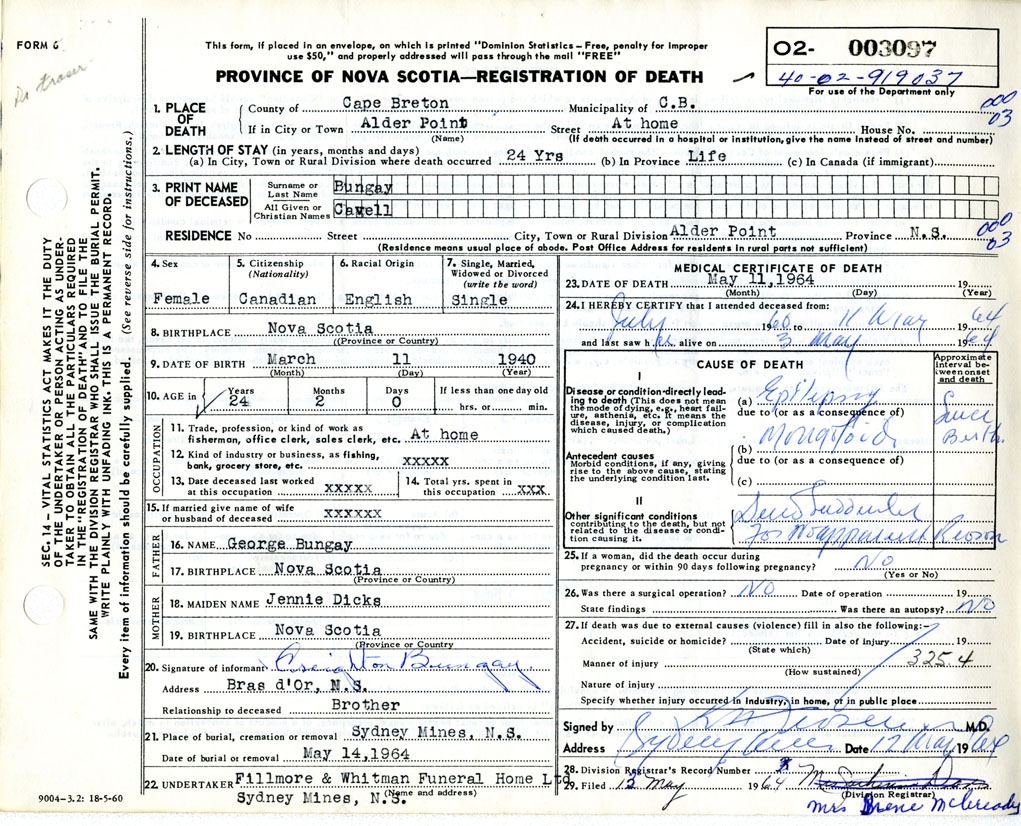 FORM 6
This form, if placed in an envelope, on which is printed "Dominion Statistics – Free, penalty for improper
use $50," and properly addressed will pass through the mail "FREE"
PROVINCE OF NOVA SCOTIA—REGISTRATION OF DEATH
02- 003097
40-02-919037
For use of the Department only
Dr Fraser
SEC. 14 – VITAL STATISTICS ACT MAKES IT THE DUTY
OF THE UNDERTAKER OR PERSON ACTING AS UNDER-
TAKER TO OBTAIN ALL THE PARTICULARS REQUIRED
IN THE "REGISTRATION OF DEATH" AND TO FILE THE
SAME WITH THE DIVISION REGISTRAR WHO SHALL ISSUE THE BURIAL PERMIT.
WRITE PLAINLY WITH UNFADING INK. THIS IS A PERMANENT RECORD.
Every item of information should be carefully supplied. (See reverse side for instructions.)
1. PLACE OF DEATH
County of Cape Breton Municipality of C.B. 000
If in City or Town Alder Point Street At home House No. 03
(Name) (If death occurred in a hospital or institution, give the name instead of street and number)
2. LENGTH OF STAY (in years, months and days)
(a) In City, Town or Rural Division where death occurred 24 Yrs (b) In Province Life (c) In Canada (if immigrant)
3. PRINT NAME OF DECEASED
Surname or Last Name Bungay
All Given or Christian Names Cavell
RESIDENCE No Street City, Town or Rural Division Alder Point Province N.S. 000 03
(Residence means usual place of abode. Post Office Address for residents in rural parts not sufficient)
4. Sex
Female
5. Citizenship (Nationality)
Canadian
6. Racial Origin
English
7. Single, Married, Widowed or Divorced (write the word)
Single
8. BIRTHPLACE Nova Scotia
(Province or Country)
9. DATE OF BIRTH March 11 1940
(Month) (Day) (Year)
10. AGE in Years 24 Months 2 Days 0 If less than one day old
hrs. or min.
OCCUPATION
11. Trade, profession, or kind of work as
fisherman, office clerk, sales clerk, etc. At home
12. Kind of industry or business, as fishing,
bank, grocery store, etc. xxxxx
13. Date deceased last worked
at this occupation xxxxx
14. Total yrs. spent in
this occupation xxx
15. If married give name of wife
or husband of deceased xxxxxx
FATHER
16. NAME George Bungay
17. BIRTHPLACE Nova Scotia
(Province or Country)
MOTHER
18. MAIDEN NAME Jennie Dicks
19. BIRTHPLACE Nova Scotia
(Province or Country
20. Signature of informant Creighton Bungay
Address Bras d'Or, N.S.
Relationship to deceased Brother
21. Place of burial, cremation or removal Sydney Mines, N.S.
Date of burial or removal May 14,1964
22. UNDERTAKER Fillmore & Whitman Funeral Home Ltd
Sydney Mines, N.S. (Name and address)
9004-3.2: 18-5-60
MEDICAL CERTIFICATE OF DEATH
23. DATE OF DEATH May 11,1964 19
(Month) (Day) (Year)
24. I HEREBY CERTIFY that I attended deceased from:
July 1960 to 11 May 1964
and last saw her alive on 3 May 1964
CAUSE OF DEATH
Approximate interval between onset and death
I
Disease or condition directly leading to death (This does not mean the mode of dying, e.g., heart failure, asthenia, etc. It means the disease, injury, or complication which caused death.)
(a) Epilepsy
due to (or as a consequence of)
Since Birth
Mongoloid
Antecedent causes
Morbid conditions, if any, giving rise to the above cause, stating the underlying condition last.
(b)
due to (or as a consequence of)
(c)
II
Other significant conditions
contributing to the death, but not related to the disease or condition causing it.
Died Suddenly
For No apparent Reason
25. If a woman, did the death occur during
pregnancy or within 90 days following pregnancy? No
(Yes or No)
26. Was there a surgical operation? NO Date of operation 19
State findings Was there an autopsy? NO
27. If death was due to external causes (violence) fill in also the following:-
Accident, suicide or homicide? Date of injury 19
(State which)
Manner of injury 3254
(How sustained)
Nature of injury
Specify whether injury occurred in industry, in home, or in public place
Signed by M.D.
Address Sydney Mines Date 12 May 1964
28. Division Registrar's Record Number
29. Filed 13 May 1964
(Division Registrar)
Mrs Irene McCready